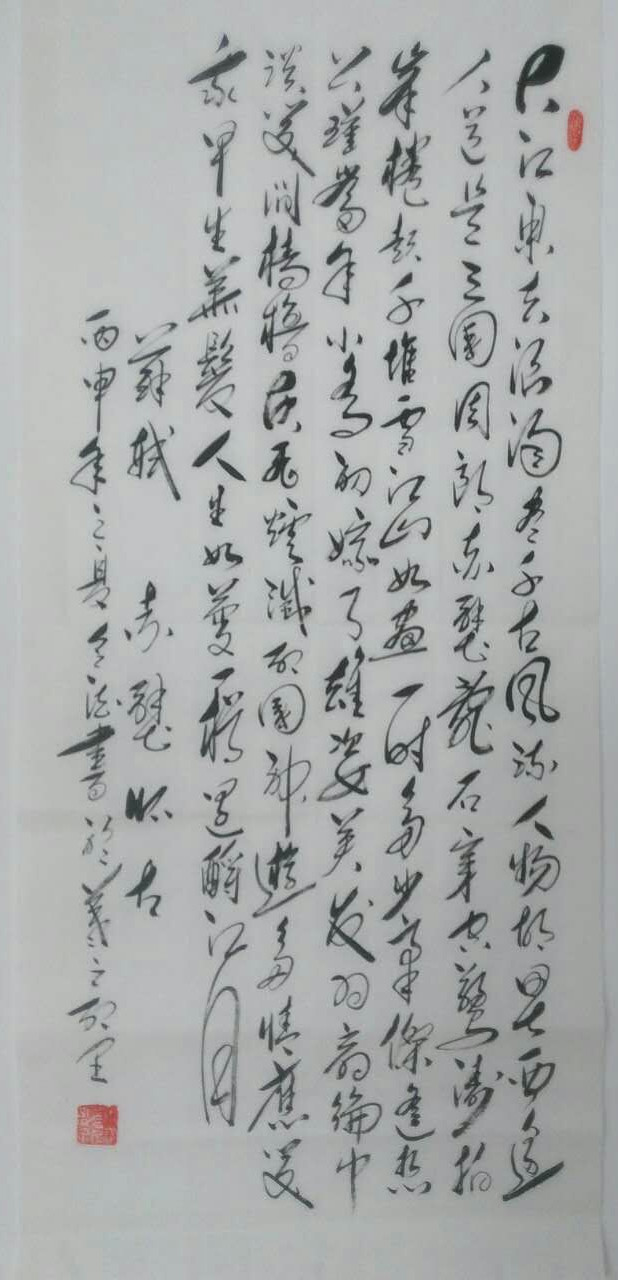 大江東去浪淘盡千古風流人物故壘西邊
人道是三國周郎赤壁亂石穿空驚濤拍
岸捲起千堆雪江山如畫一時多少豪傑遙想
公瑾當年小喬初嫁了雄姿英發羽扇綸巾
談笑間檣櫓灰飛煙滅故國神遊多情應笑
我早生華髮人生如夢一樽還酹江月
蘇軾 赤壁懷古
丙申年之夏書於羲之故里